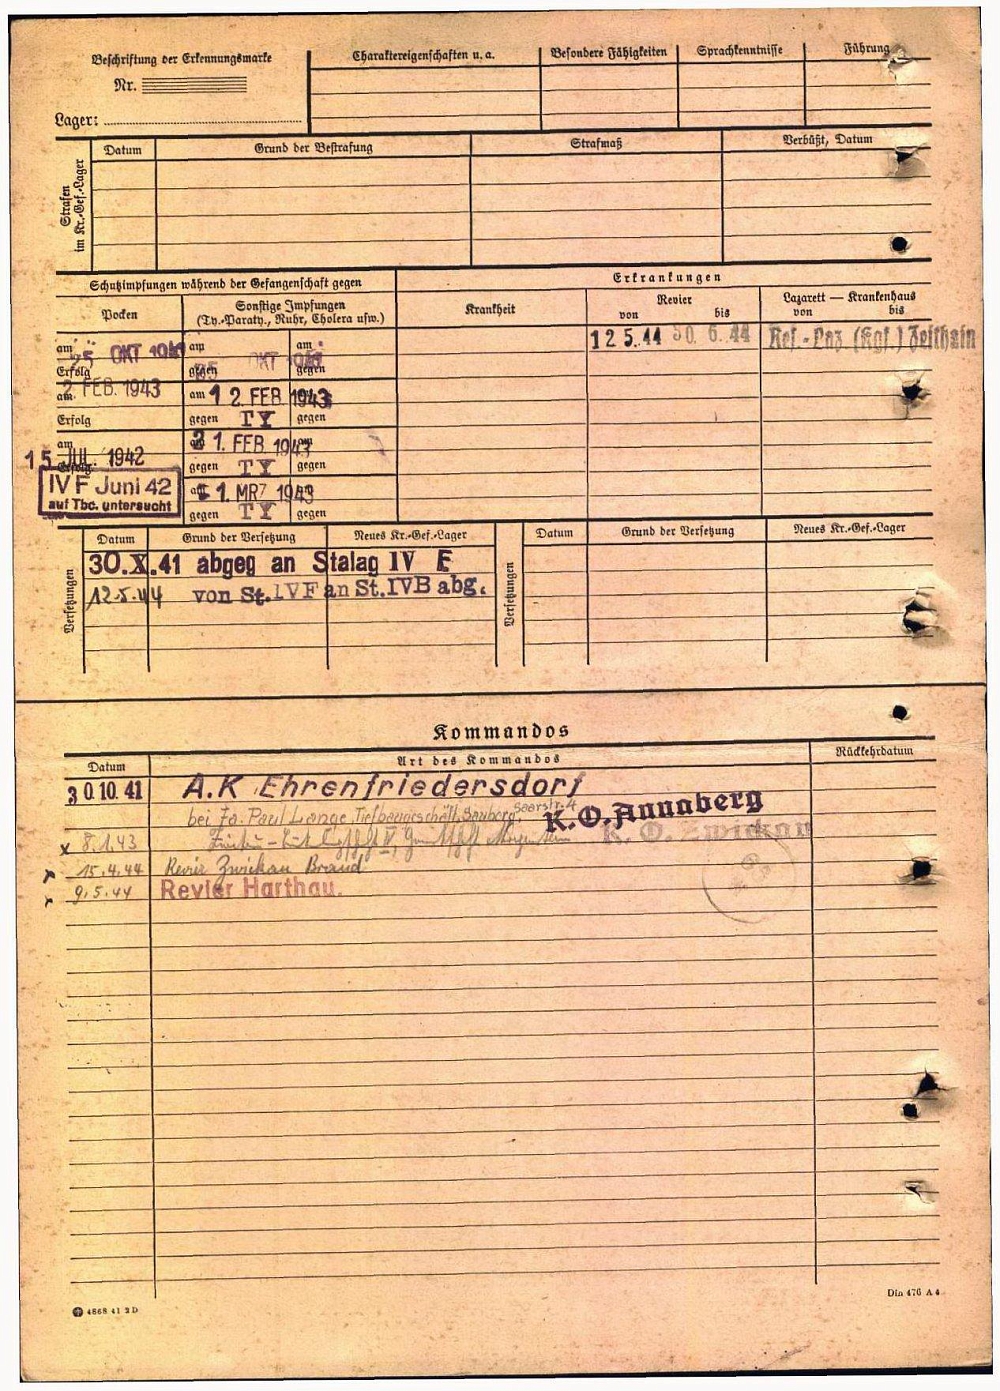 Beschriftung der Erkennungsmarke
Nr.
Lager:
Charaktereigenschaften u. a.
Besondere Fähigkeiten
Sprachkenntnisse
Führung
Strafen
im Kr.-Gef.-Lager
Datum
Grund der Bestrafung
Strafmaß
Verbüßt, Datum
Schutzimpfungen während der Gefangenschaft gegen
Erkrankungen
Pocken
Sonstige Impfungen
(Ty.-Paraty., Ruhr, Cholera usw.)
Krankheit
Revier
von bis
Lazarett — Krankenhaus
von bis
12 5. 44 30. 6. 44 Ref.-Laz. (Kgf.) Zeithain
am 25 OKT 1941 am OKT 1941 am
Erfolg gegen gegen
am 2. FEB. 1943 am 1 2. FEB. 1943
Erfolg gegen TY gegen
am 21. FEB. 1943
15 JUL. 1942 gegen TY gegen
Erfolg
IV F Juni 42
auf Tbc. untersucht
1. MRZ 1943
gegen TY gegen
Versetzungen
Datum
Grund der Versetzung
Neues Kr.-Gef.-Lager
Versetzungen
Datum
Grund der Versetzung
Neues Kr.-Gef.-Lager
30.X.41 abgeg an Stalag IV F
12.5.44 von St. IVF an St. IVB abg.
Kommandos
Datum
Art des Kommandos
Rückkehrdatum
30.10.41 A.K Ehrenfriedersdorf
bei Fa. Paul Lange, Tiefbaugeschäft, Saarstr. 4
K.O. Annaberg
8.1.43
K. O. Zwickau
15.4.44 Revier Zwickau Brand
9.5.44 Revier Harthau.
4568 41 2 D
Din 476 A 4